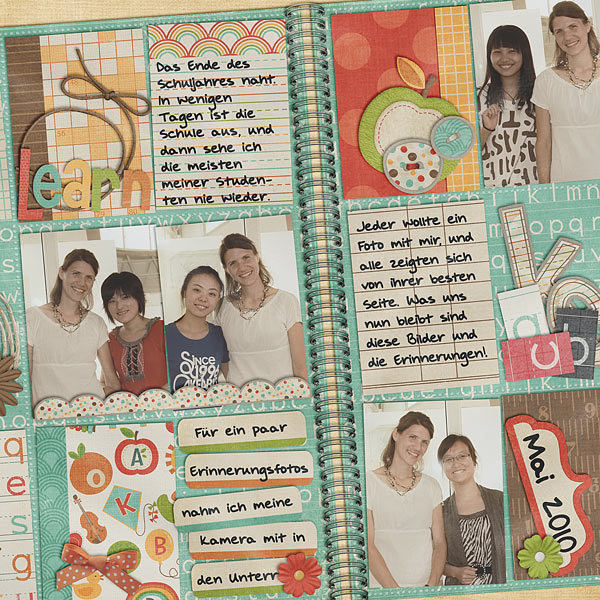 Das Ende des
Schuljahres naht.
In wenigen
Tagen ist die
Schule aus, und
dann sehe ich
die meisten
meiner Studen-
ten nie wieder.
Learn
SINCE
1994
Für ein paar
Erinnerungsfotos
nahm ich meine
Kamera mit in
den Unterr
A
K
B
Jeder wollte ein
Foto mit mir, und
alle zeigten sich
von ihrer besten
Seite. Was uns
nun bleibt sind
diese Bilder und
die Erinnerungen!
Mai 2010